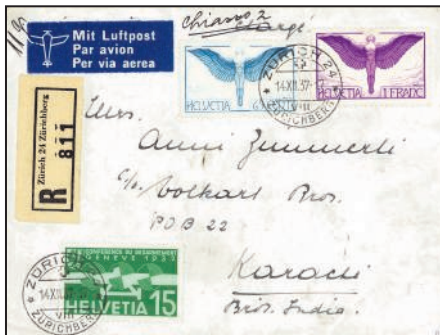 Chiasso 2
Chargé
Mit Luftpost
Par avion
Per via aerea
HELVETIA 65 CENTIMES
HELVETIA 1 FRANC
ZÜRICH 24
14.XII.37
ZÜRICHBERG
R
Zürich 24 Zürichberg
811
Anni Zimmerli
c/o Volkart Bros.
POB 22
Karachi
Brit. India.
CONFERENCE DU DESARMEMENT
GENEVE 1932
HELVETIA 15
ZÜRICH
14.XII.37
VIII
ZÜRICHBERG